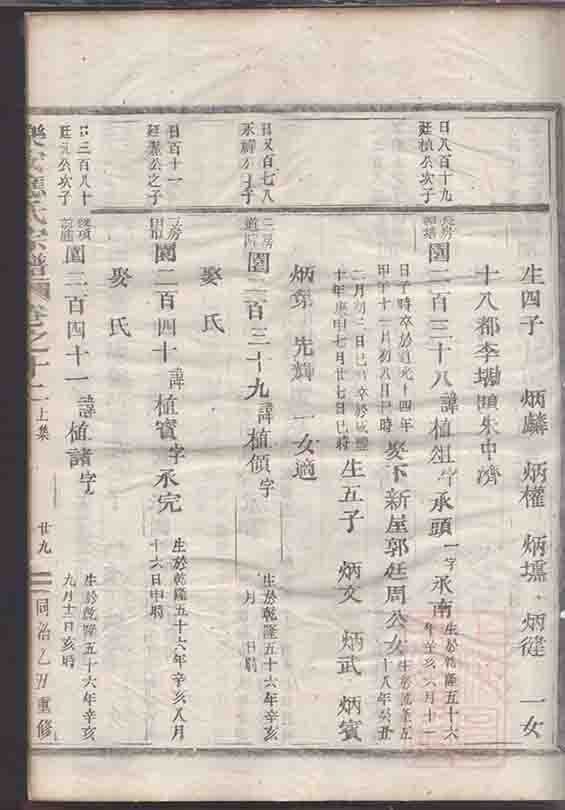 生四子 炳麟 炳權 炳壎 炳縫 一女
十八都李塲頭朱中濟
日八百十九
廷楨公次子
長房
園二百三十八諱植俎字承頭一字承南
生於乾隆五十六
年辛亥六月十一
日子時卒於道光十四年
甲午十一月初八日巳時
娶下新屋郭廷周公女
十八年癸丑
二月初二日巳時卒於咸豐
十年庚申七月廿七日巳時
生五子 炳文 炳武 炳賓
炳彙 先輝 一女適
日又百七八
永禪公子
二房
園二百三十九諱植傾字
生於乾隆五十六年辛亥
月 日時
娶氏
日百十一
廷 公之子
二房
園二百四十諱植實字承完
生於乾隆五十六年辛亥八月
十六日申時
娶氏
日三百八十
廷 公次子
園二百四十一諱植諸字
生於乾隆五十六年辛亥
九月十二日亥時
氏宗譜 卷之十二上集 廿九 同治乙丑重修